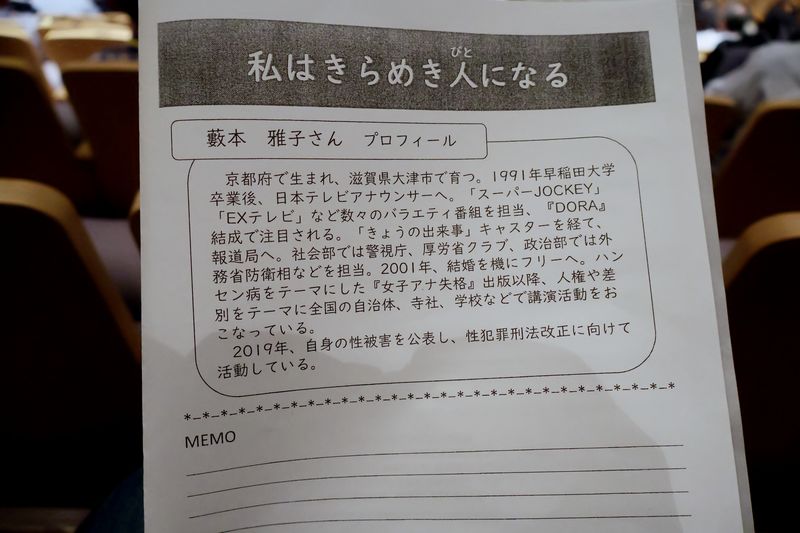 私はきらめき人になる
びと
藪本　雅子さん　プロフィール
京都府で生まれ、滋賀県大津市で育つ。1991年早稲田大学
卒業後、日本テレビアナウンサーへ。「スーパーJOCKEY」
「EXテレビ」など数々のバラエティ番組を担当、『DORA』
結成で注目される。「きょうの出来事」キャスターを経て、
報道局へ。社会部では警視庁、厚労省クラブ、政治部では外
務省防衛相などを担当。2001年、結婚を機にフリーへ。ハン
セン病をテーマにした『女子アナ失格』出版以降、人権や差
別をテーマに全国の自治体、寺社、学校などで講演活動をお
こなっている。
2019年、自身の性被害を公表し、性犯罪刑法改正に向けて
活動している。
*-*-*-*-*-*-*-*-*-*-*-*-*-*-*-*-*-*-*-*-*-*-*-*-*-*-*-*
MEMO